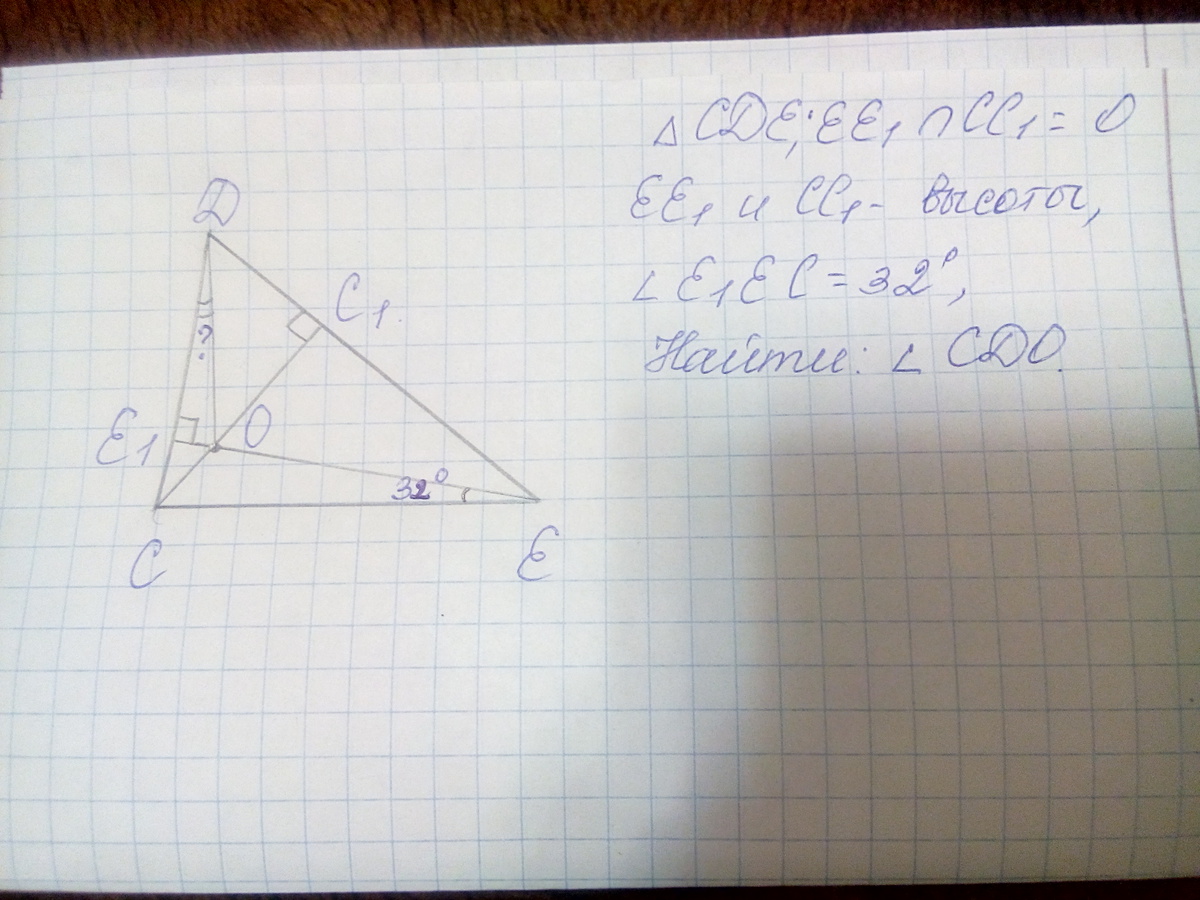 △CDE; EE₁ ∩ CC₁ = O
EE₁ и CC₁ - высоты,
∠E₁EC = 32°,
Найти: ∠CDO.
D
C₁.
?
E₁
O
32°
C
E